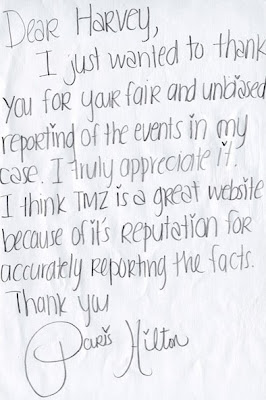 Dear Harvey,
I just wanted to thank
you for your fair and unbiased
reporting of the events in my
case. I truly appreciate it.
I think TMZ is a great website
because of it's reputation for
accurately reporting the facts.
Thank you
Paris Hilton